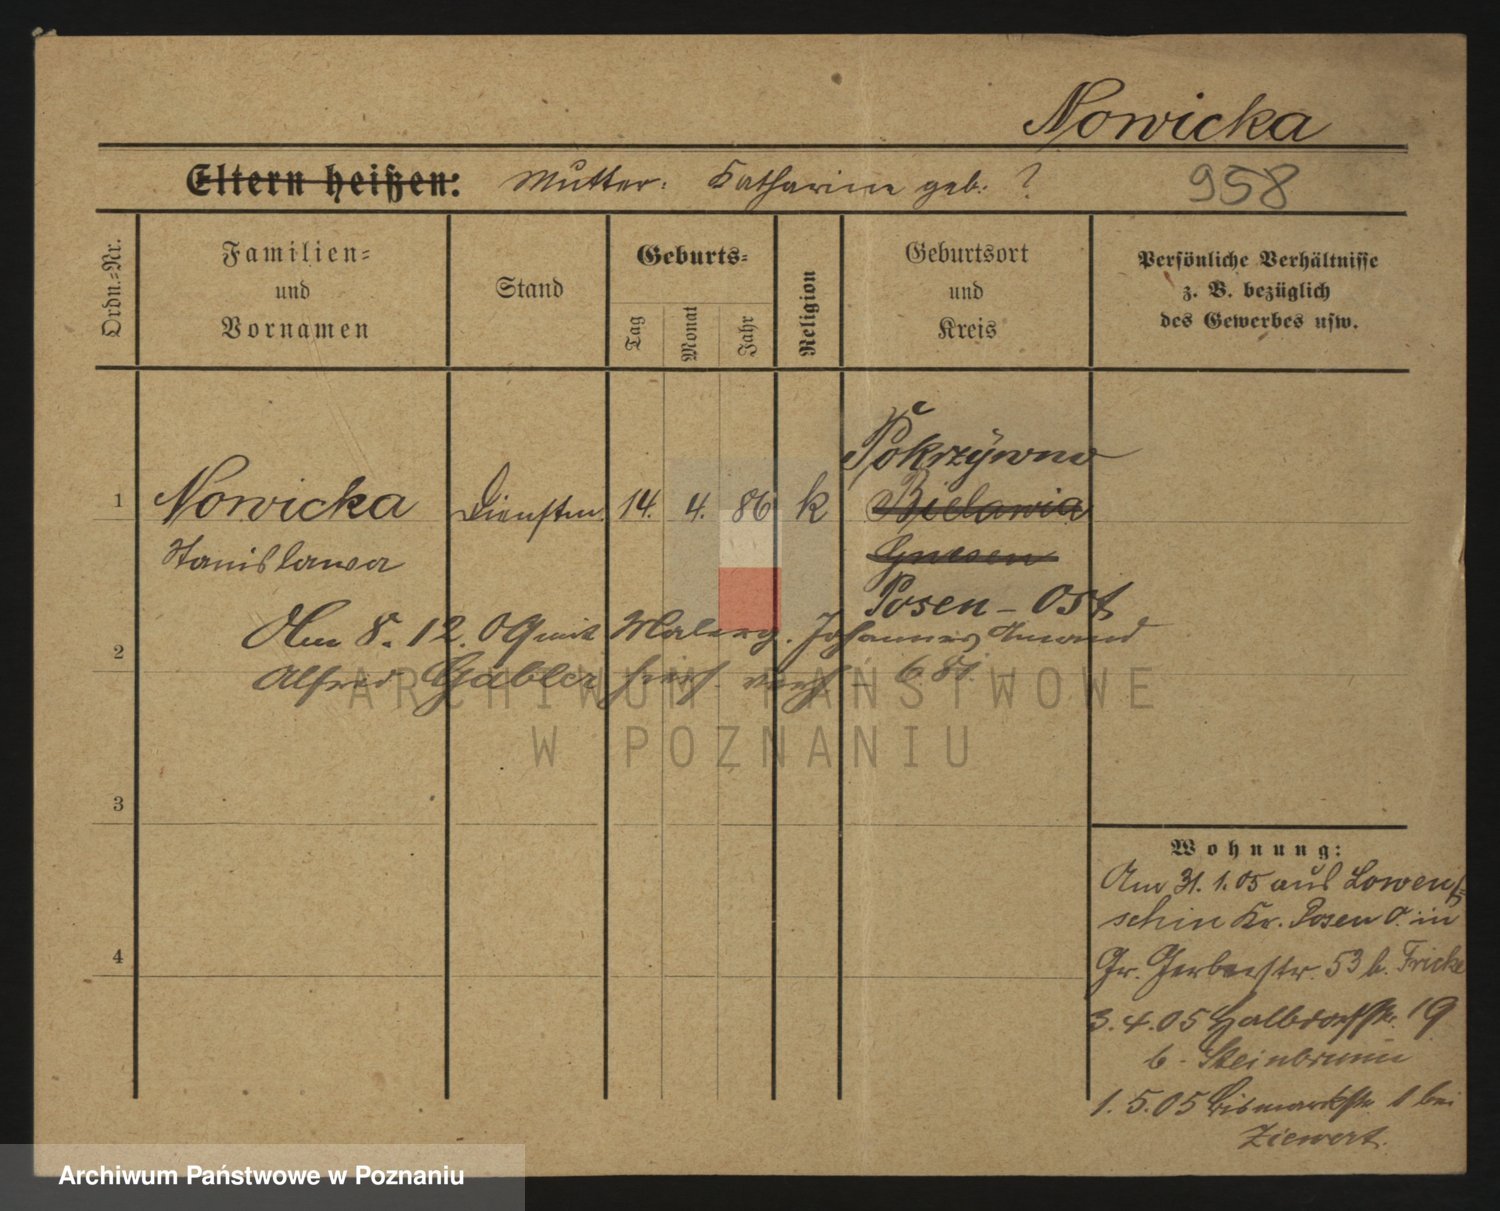 Nowicka
Eltern heißen: Mutter: Katharina geb. ?
958
Ordn.-Nr.
Familien-
und
Vornamen
Stand
Geburts-
Tag
Monat
Jahr
Religion
Geburtsort
und
Kreis
Persönliche Verhältnisse
z. B. bezüglich
des Gewerbes usw.
Pokrzywno
1 Nowicka Dienstm. 14. 4. 86 k Bielawia
Stanislawa Gnesen
Posen-Ost
Am 8. 12. 09 mit Malerg. Johannes Amand
2
Alfred Gabler hies. verh. 6.81.
ARCHIWUM PAŃSTWOWE
W POZNANIU
3
Wohnung:
Am 31. 1. 05 aus Lowen-
schin Kr. Posen O. in
4
Gr. Gerberstr. 53 b. Fricke
3. 4. 05 Halbdorfstr. 19
b. Steinbrunn
1. 5. 05 Bismarckstr. 1 bei
Ziewert.
Archiwum Państwowe w Poznaniu